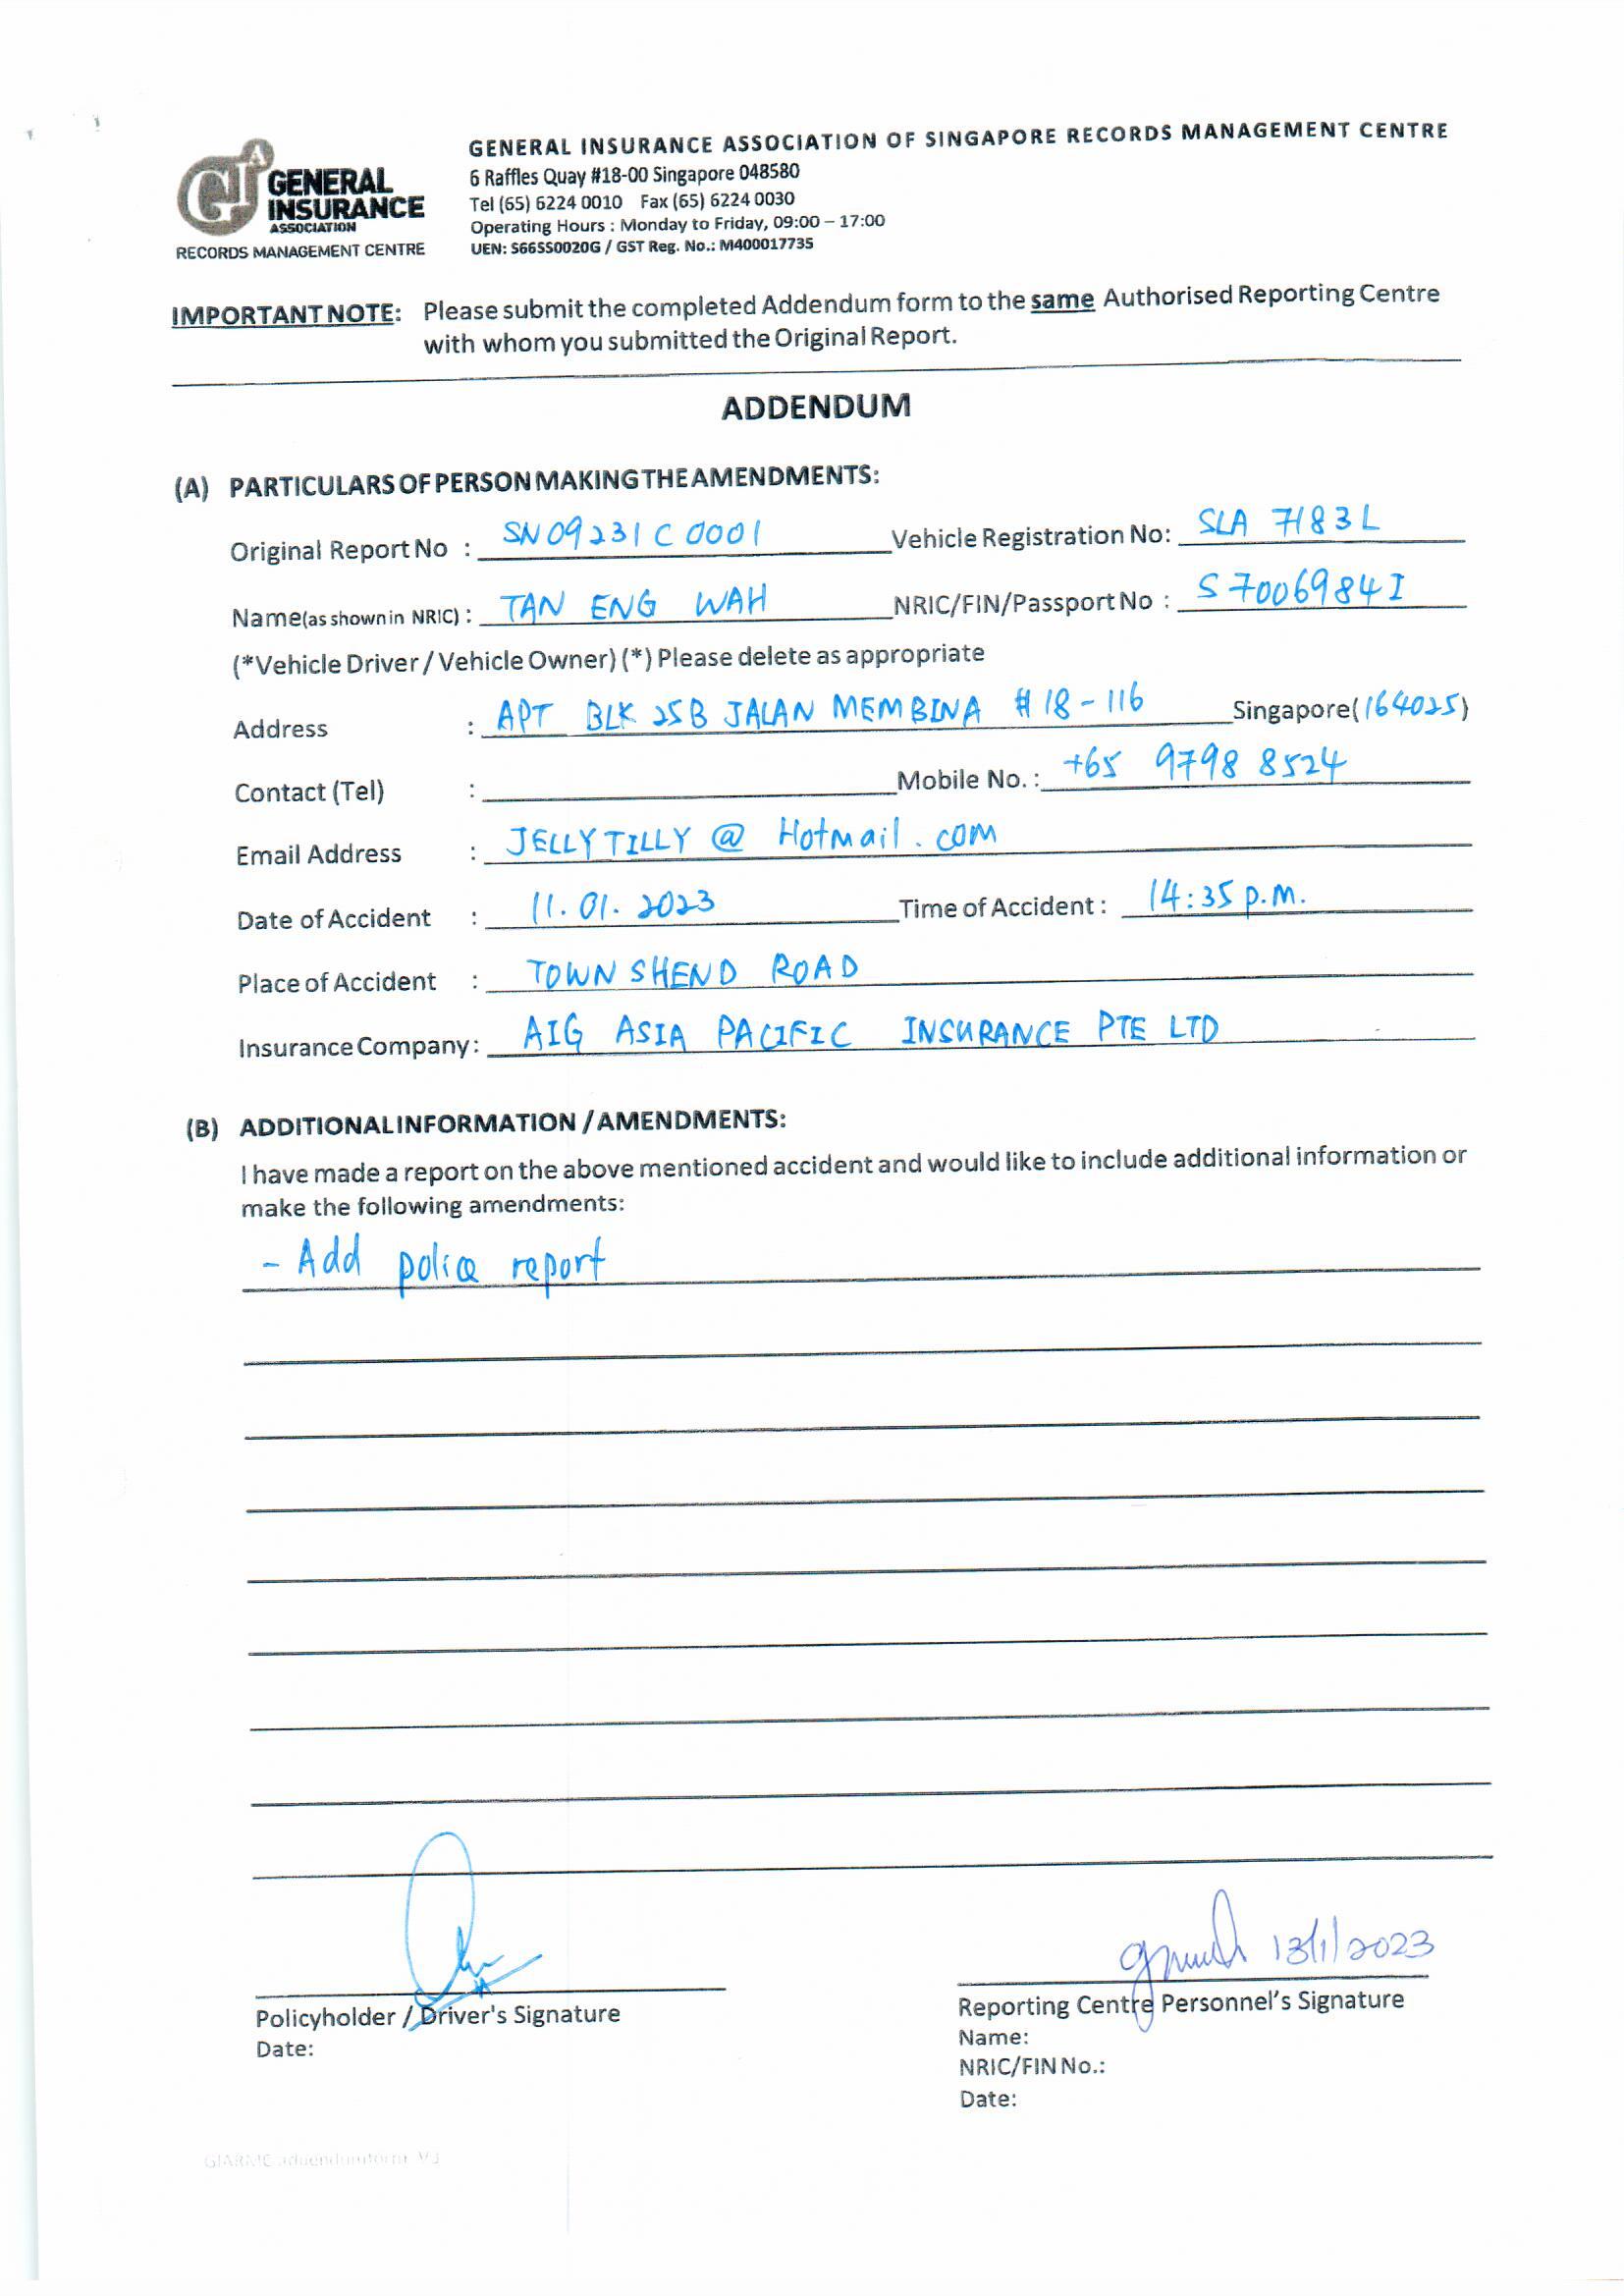 GENERAL INSURANCE ASSOCIATION OF SINGAPORE RECORDS MANAGEMENT CENTRE
6 Raffles Quay #18-00 Singapore 048580
Tel (65) 6224 0010 Fax (65) 6224 0030
Operating Hours : Monday to Friday, 09:00 – 17:00
UEN: S66SS0020G / GST Reg. No.: M400017735
GIA GENERAL
INSURANCE
ASSOCIATION
RECORDS MANAGEMENT CENTRE
IMPORTANT NOTE: Please submit the completed Addendum form to the same Authorised Reporting Centre
with whom you submitted the Original Report.
ADDENDUM
(A) PARTICULARS OF PERSON MAKING THE AMENDMENTS:
Original Report No : SN09231C0001 Vehicle Registration No: SLA 7183L
Name(as shown in NRIC) : TAN ENG WAH NRIC/FIN/Passport No : S7006984I
(*Vehicle Driver / Vehicle Owner) (*) Please delete as appropriate
Address : APT BLK 25B JALAN MEMBINA #18-116 Singapore(164025)
Contact (Tel) : Mobile No. : +65 9798 8524
Email Address : JELLYTILLY @ Hotmail . com
Date of Accident : 11.01.2023 Time of Accident : 14:35 p.m.
Place of Accident : TOWNSHEND ROAD
Insurance Company : AIG ASIA PACIFIC INSURANCE PTE LTD
(B) ADDITIONAL INFORMATION / AMENDMENTS:
I have made a report on the above mentioned accident and would like to include additional information or
make the following amendments:
- Add police report
13/1/2023
Policyholder / Driver's Signature Reporting Centre Personnel's Signature
Date: Name:
NRIC/FIN No.:
Date: